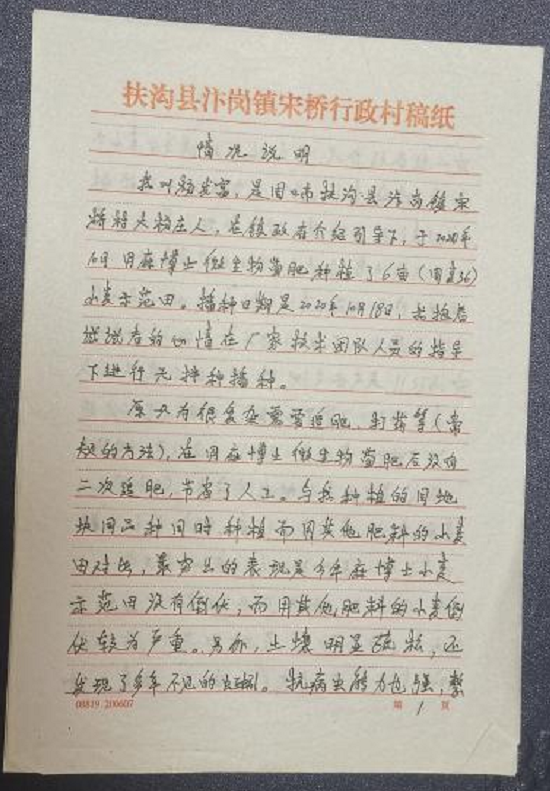 扶沟县汴岗镇宋桥行政村稿纸
情况说明
我叫 是周口市扶沟县汴岗镇宋
桥村大杨庄人，在镇政府介绍引导下，于2020年
10月用麻博士微生物菌肥种植了6亩（周麦36）
小麦示范田。播种日期是2020年10月18日，
的 情在厂家技术团队人员的指导
下进行无拌种播种。
原 为很 需要追肥、打药等（常
规的方法），在用麻博士微生物菌肥后没有
二次追肥，节省了人工。与我种植的同地
块同品种同时种植而用其他肥料的小麦
田对比，最突出的表现是今年麻博士小麦
示范田没有倒伏，而用其他肥料的小麦倒
伏较为严重。另外，土壤明显疏松，还
发现了多年不见的 。抗病虫能力也强，整
00819.200607 第 1 页